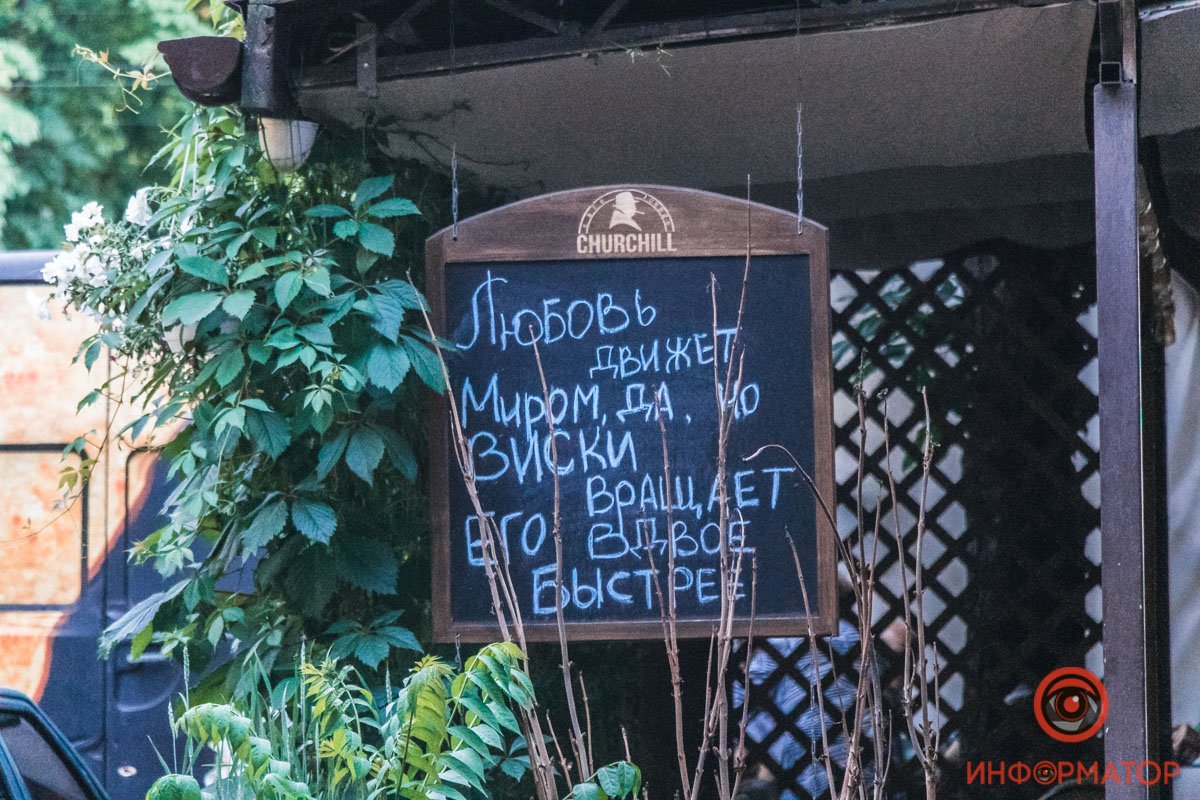 CHURCHILL
Любовь
движет
Миром, да, но
виски
вращает
его вдвое
быстрее
ИНФОРМАТОР